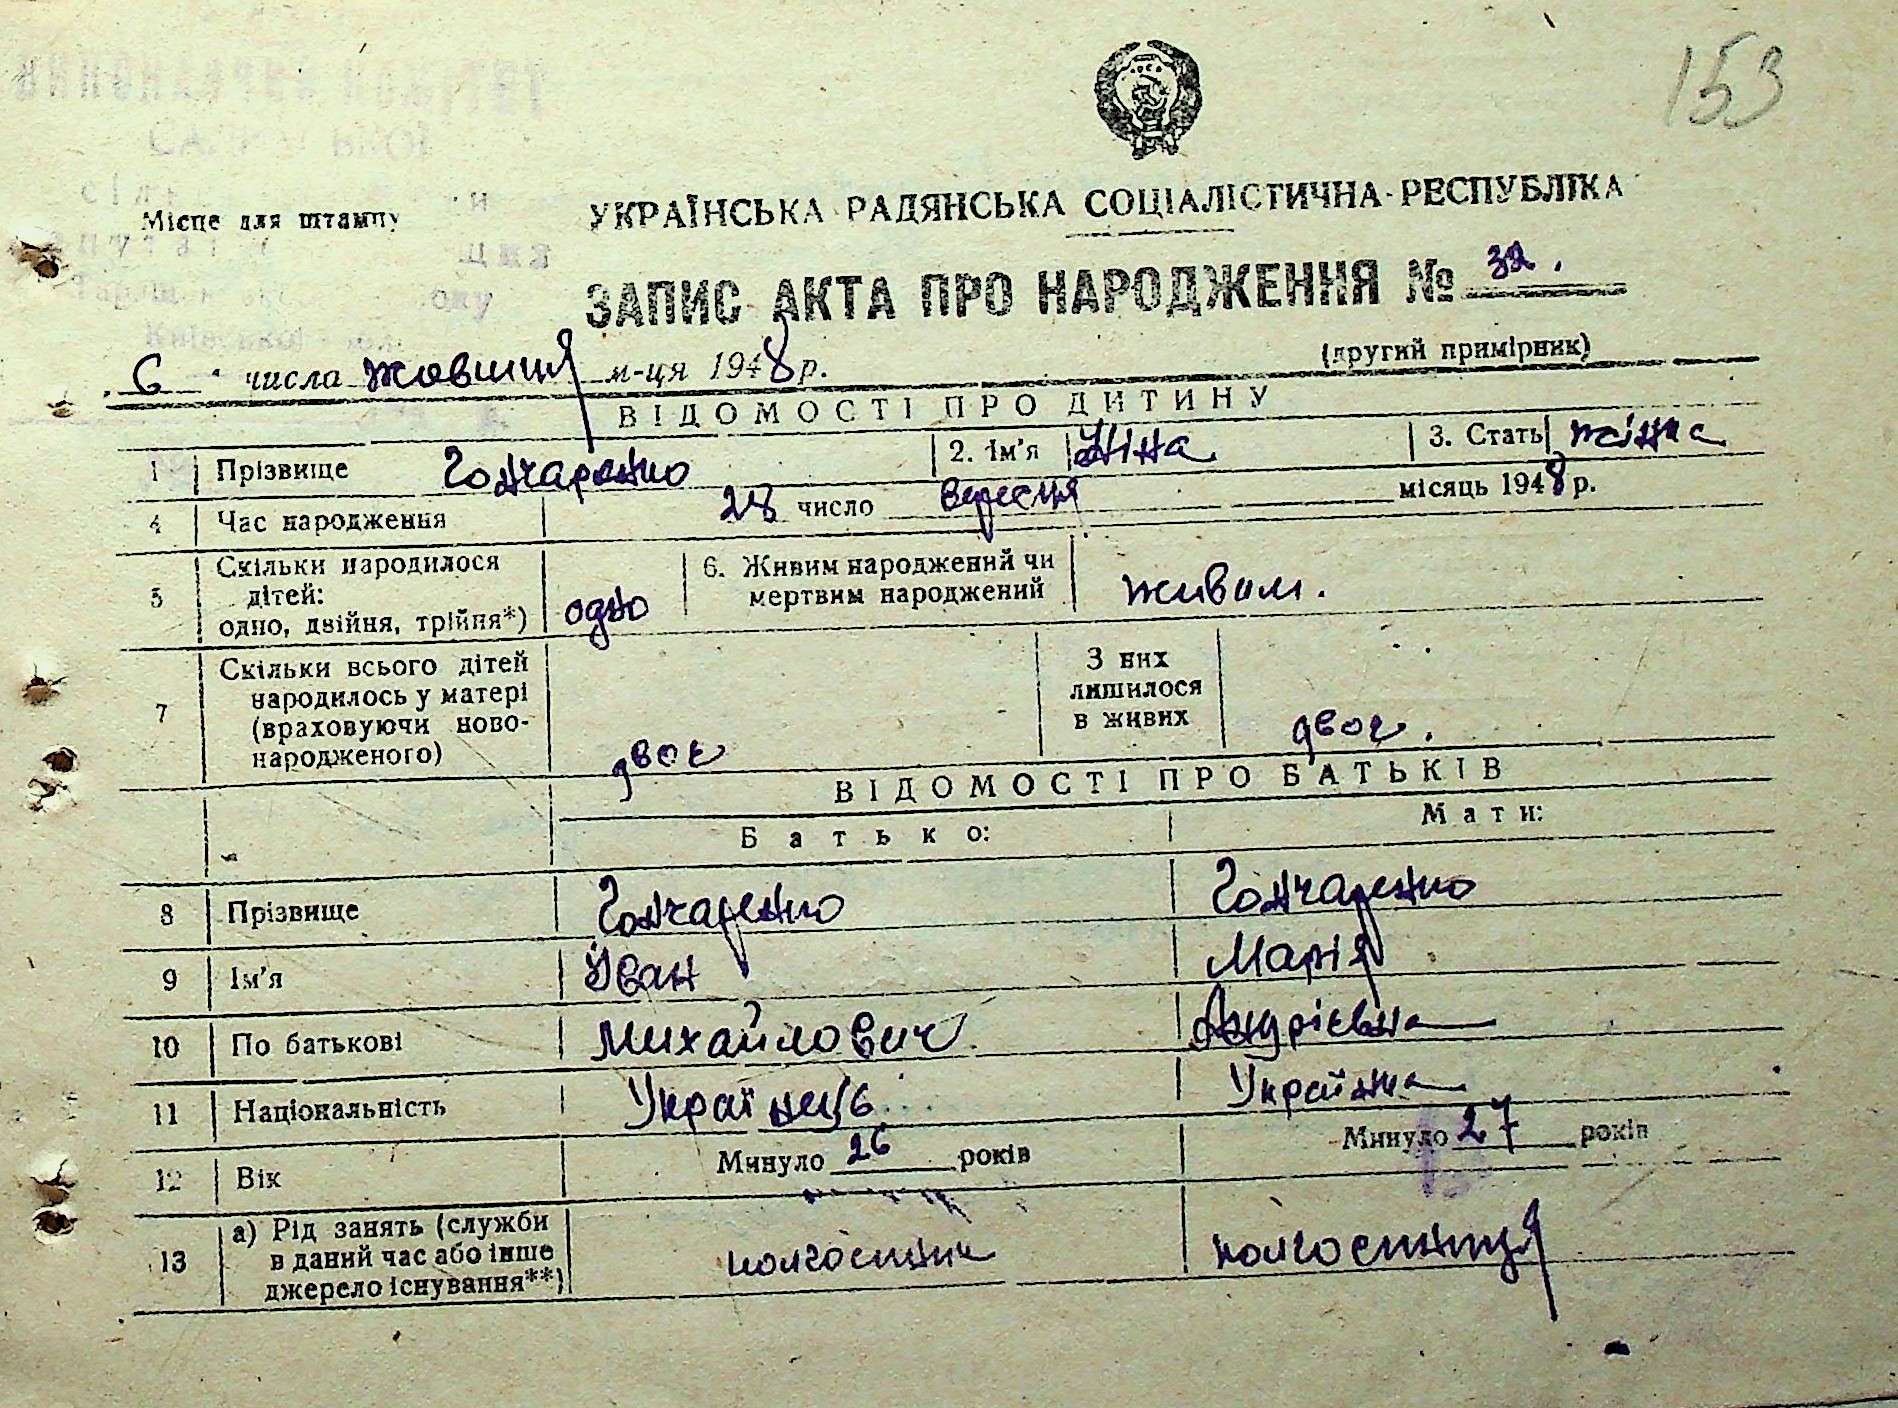 153
УКРАЇНСЬКА РАДЯНСЬКА СОЦІАЛІСТИЧНА РЕСПУБЛІКА
Місце для штампу
ЗАПИС АКТА ПРО НАРОДЖЕННЯ № 32.
(другий примірник)
6 числа жовтня м-ця 1948 р.
ВІДОМОСТІ ПРО ДИТИНУ
1 Прізвище Гончаренко 2. Ім'я Ніна 3. Стать жінка
4 Час народження 28 число вересня місяць 1948 р.
5 Скільки народилося дітей: одно, двійня, трійня*) одно 6. Живим народжений чи мертвим народжений живим.
7 Скільки всього дітей народилось у матері (враховуючи ново-народженого) двоє З них лишилося в живих двоє.
ВІДОМОСТІ ПРО БАТЬКІВ
Батько: Мати:
8 Прізвище Гончаренко Гончаренко
9 Ім'я Іван Марія
10 По батькові Михайлович Андріївна
11 Національність Українець Українка
12 Вік Минуло 26 років Минуло 27 років
13 а) Рід занять (служби в даний час або інше джерело існування**) колгоспник колгоспниця